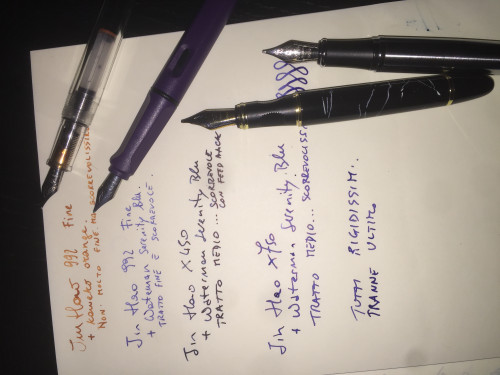 Jin Hao 992 Fine
+ Kaweko orange.
NON MOLTO FINE MA SCORREVOLISSIM
Jin Hao 992 Fine
+ Waterman Serenity Blu.
TRATTO FINE E SCORREVOLE.
Jin Hao X450
+ Waterman Serenity Blu
TRATTO MEDIO ... SCORREVOLE
CON FEEDBACK
Jin Hao X750
+ Waterman Serenity Blu
TRATTO MEDIO... SCORREVOLISS
TUTTI RIGIDISSIMI.
TRANNE ULTIMO